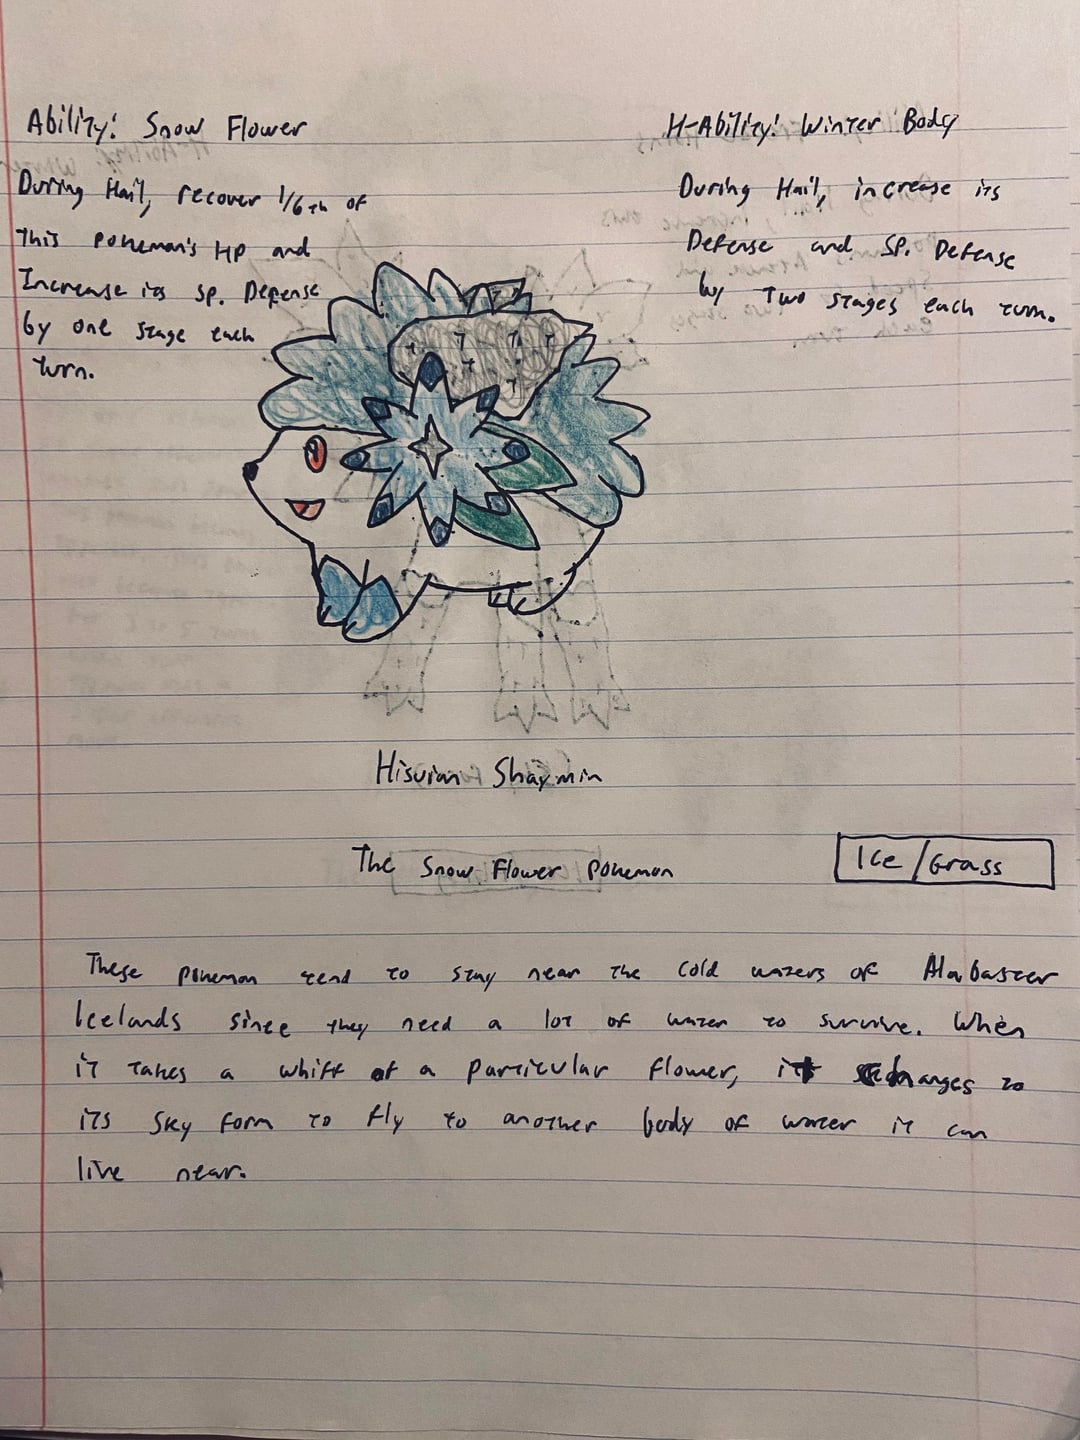 Ability: Snow Flower
During Hail, recover 1/6th of
this pokemon's HP and
Increase its Sp. Defense
by one stage each
turn.
H-Ability: Winter Body
During Hail, increase its
Defense and Sp. Defense
by two stages each turn.
Hisuian Shaymin
The Snow Flower Pokemon
Ice/Grass
These pokemon tend to stay near the cold waters of Alabaster
Icelands since they need a lot of water to survive. When
it takes a whiff of a particular flower, it changes to
its Sky form to fly to another body of water it can
live near.